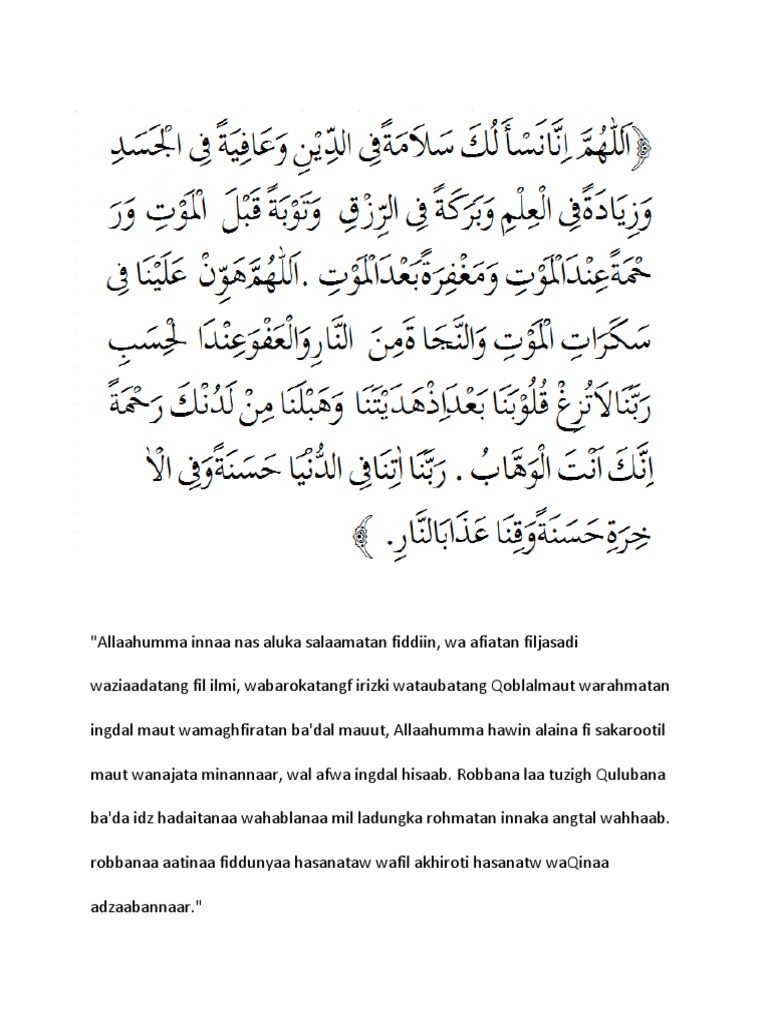 ﴿اَللّٰهُمَّ اِنَّانَسْأَلُكَ سَلاَمَةًفِى الدِّيْنِ وَعَافِيَةً فِى الْجَسَدِ
وَزِيَادَةًفِى الْعِلْمِ وَبَرَكَةً فِى الرِّزْقِ وَتَوْبَةً قَبْلَ الْمَوْتِ وَرَ
حْمَةًعِنْدَالْمَوْتِ وَمَغْفِرَةًبَعْدَالْمَوْتِ .اَللّٰهُمَّهَوِّنْ عَلَيْنَا فِى
سَكَرَاتِ الْمَوْتِ وَالنَّجَا ةَمِنَ النَّارِوَالْعَفْوَعِنْدَا لْحِسَبِ
رَبَّنَالاَتُزِغْ قُلُوْبَنَا بَعْدَاِذْهَدَيْتَنَا وَهَبْلَنَا مِنْ لَدُنْكَ رَحْمَةً
اِنَّكَ اَنْتَ الْوَهَّابُ . رَبَّنَا اٰتِنَافِى الدُّنْيَا حَسَنَةًوَفِى الْاٰ
خِرَةِحَسَنَةًوَقِنَا عَذَابَالنَّارِ. ﴾
"Allaahumma innaa nas aluka salaamatan fiddiin, wa afiatan filjasadi
waziaadatang fil ilmi, wabarokatangf irizki wataubatang Qoblalmaut warahmatan
ingdal maut wamaghfiratan ba'dal mauut, Allaahumma hawin alaina fi sakarootil
maut wanajata minannaar, wal afwa ingdal hisaab. Robbana laa tuzigh Qulubana
ba'da idz hadaitanaa wahablanaa mil ladungka rohmatan innaka angtal wahhaab.
robbanaa aatinaa fiddunyaa hasanataw wafil akhiroti hasanatw waQinaa
adzaabannaar."